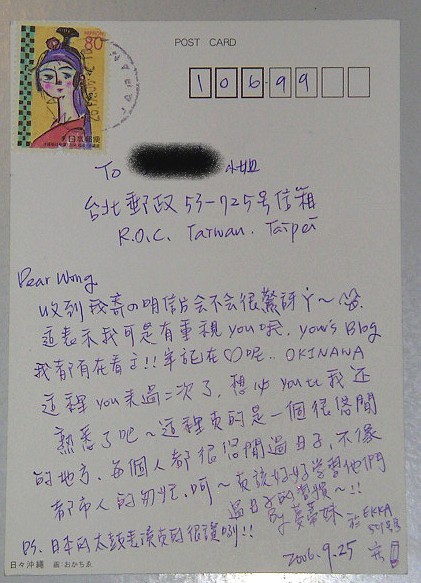 POST CARD
80
106-99
To 小姐
台北郵政53-725号信箱
R.O.C. Taiwan. Taipei
Dear Wong
收到我寄の明信片会不会很驚訝丫~
這表示我可是有重視you哦. your's Blog
我都有在看 !!筆記在♡呢.. OKINAWA
這裡you来過二次了，想必you比我还
熟悉了吧~這裡真的是一個很悠閒
的地方、每個人都很悠閒過日子，不像
都市人的匆忙. 呵~真該好好学習他們
過日子的習慣~!!
PS. 日本的太鼓表演真的很讚喲!!
於EKKA
2006.9.25
日々沖縄 画 おかちゑ